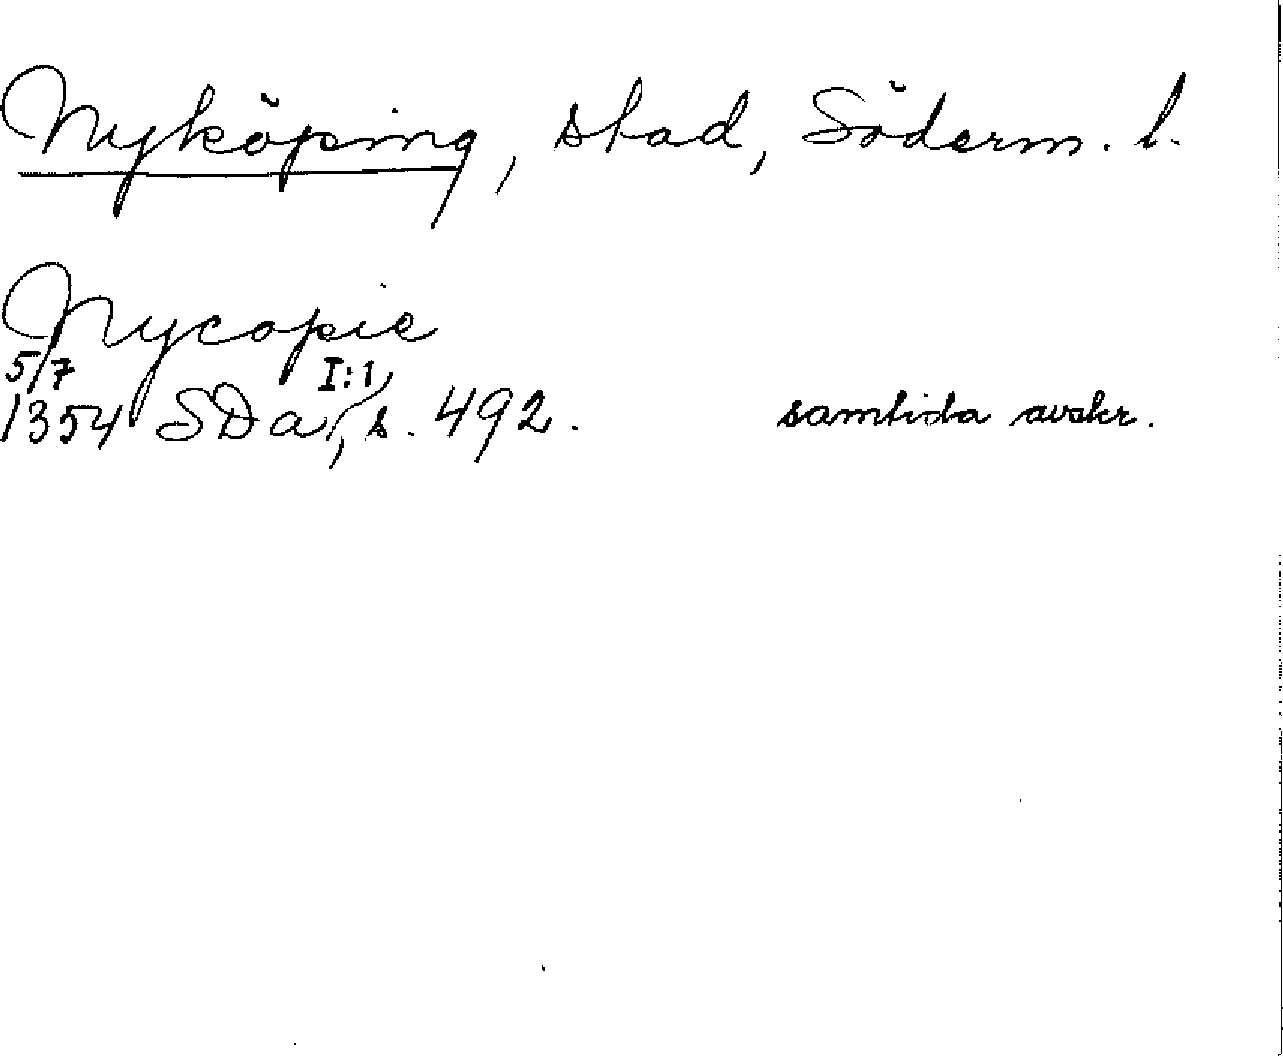 Nyköping, stad, Söderm. l.
Nycopie
5/7 I:1,
1354 SDa, s. 492. samtida avskr.